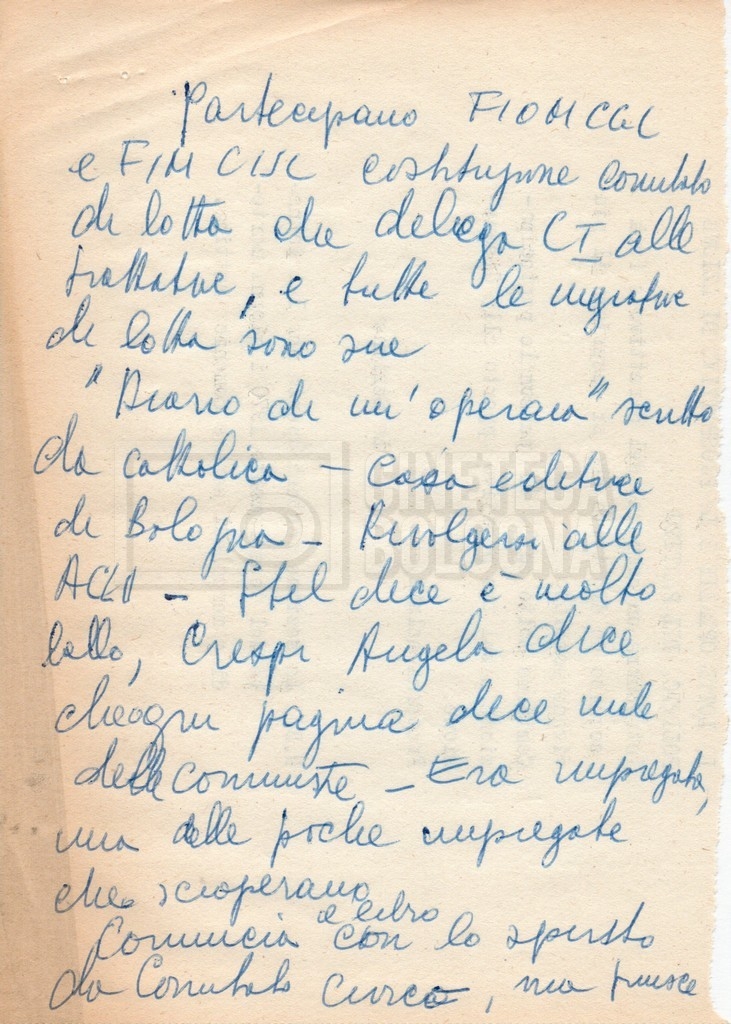 Partecipano FIOM CGL
e FIM CISL costituzione comitato
di lotta che delega CI alle
trattative, e tutte le iniziative
di lotta sono sue
"Diario di un'operaia" scritto
da cattolica – Casa editrice
di Bologna – Rivolgersi alle
ACLI – dice è molto
bello, Crespi Angela dice
che ogni pagina dice male
delle comuniste – Era impiegata,
una delle poche impiegate
che scioperano
Comincia il libro con lo spirito
da Comitato civico, ma finisce
CINETECA
BOLOGNA